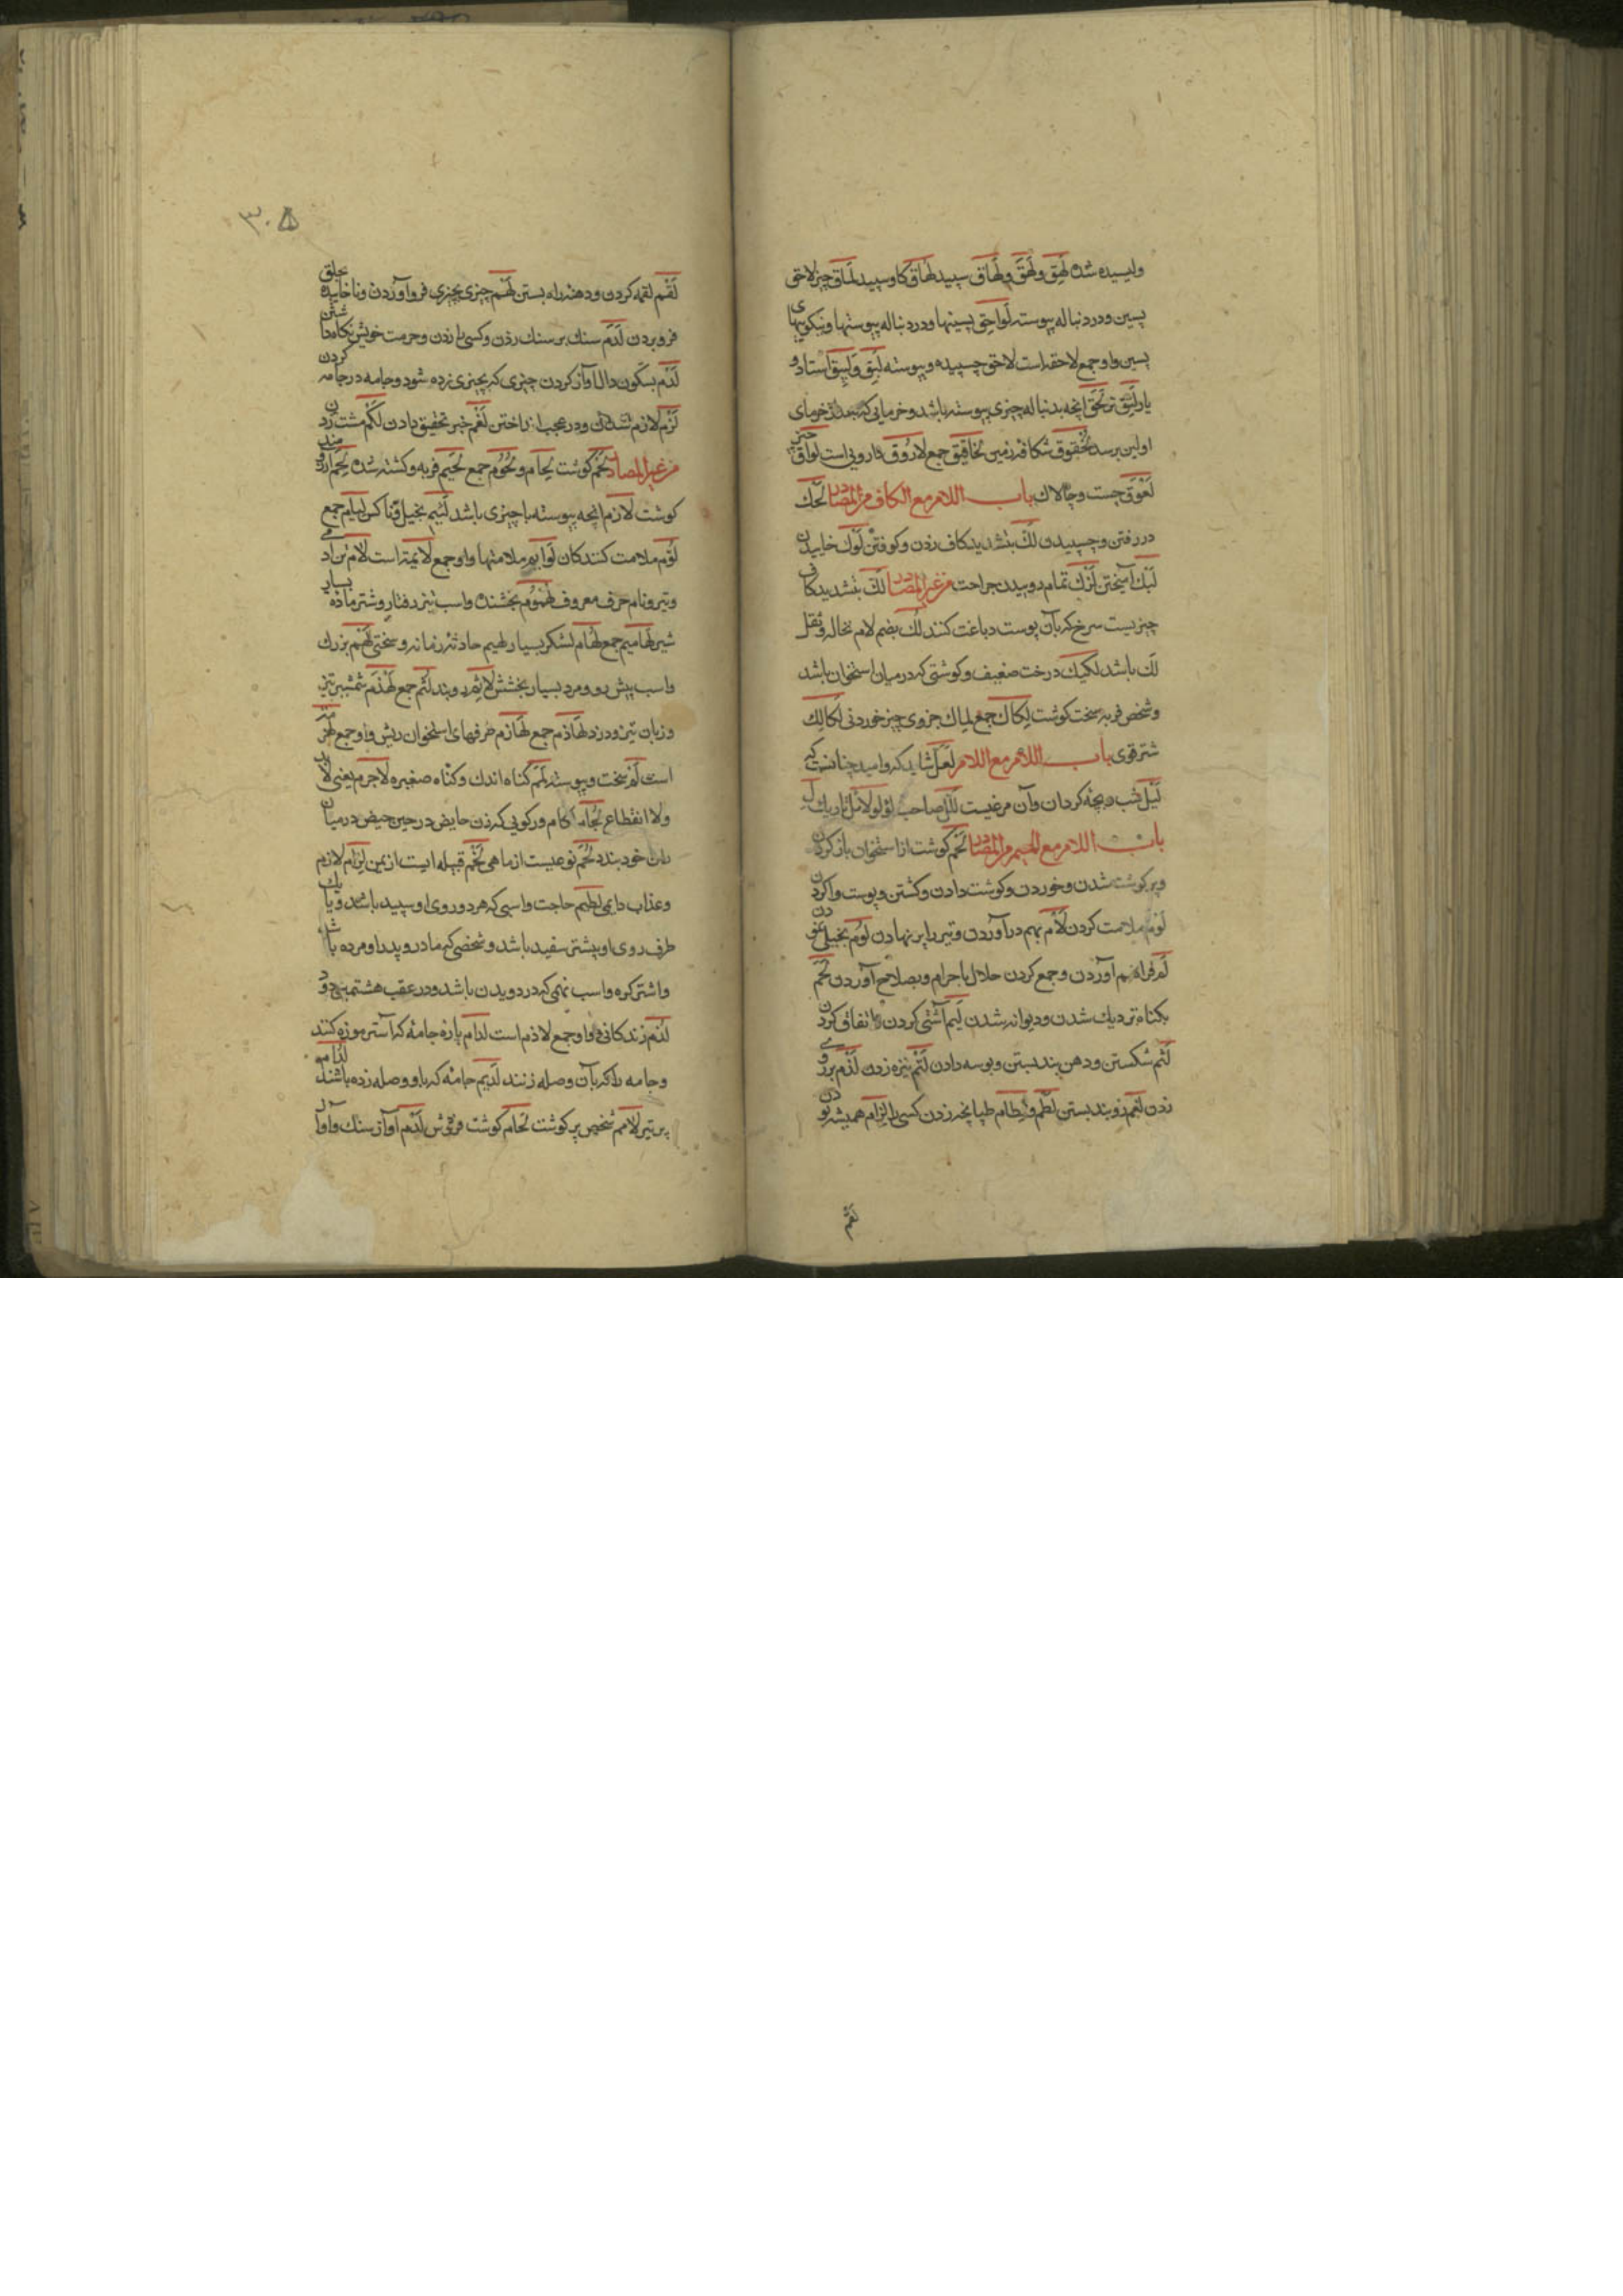 ولیسیده شده لَهِق ولَهَق ولَهَاق سپید لهَاق کاو سپید لَمَاق چیز لاحق
پسین ودر دنباله پیوسته لَواحِق پسینها ودر دنباله پیوستها ونیکوییهای
پسین واو جمع لاحقه است لاحق چسپیده وپیوسته لَبِق ولَبِیق استاد و
یار لَثِق تر لَحَق انچه بدنباله چیزی پیوسته باشد وخرمایی که بعد از خرمای
اولین برسد لُخقوق شکاف زمین لخاقیق جمع لازُوق داروی است لواق چیز
لَعْوَق چست وچالاک باب اللام مع الکاف من المصادر لَحَک
در رفتن وچسپیدن لَکّ بتشدید کاف زدن وکوفتن لَوْک خاییدن
لَبْک آمیختن لَزَک تمام روییدن جراحت من غیر المصادر لَکّ بتشدید کاف
چیزیست سرخ که بآن پوست دباغت کنند لُکّ بضم لام نخاله وثقل
لَک باشد لکیک درخت ضعیف وکوشتی که در میان استخوان باشد
وشخص فربه سخت کوشت لِکاک جمع لماک جزوی چیز خوردنی لُکالِک
شتر قوی باب اللام مع اللام لَعَلّ شاید که وامید چنانست که
لَیْل شب وبچه کردان وآن مرغیست لَأْل صاحب لؤلؤ لائل تاریک
باب اللام مع المیم من المصادر لَحْم کوشت از استخوان باز کردن
وپر کوشت شدن وخوردن وکوشت دادن وکشتن وپوست واکردن
لَوْم ملامت کردن لَأْم بهم در آوردن وتیر را پر نهادن لُؤم بخیلی نمودن
لَمّ فراهم آوردن وجمع کردن حلال با حرام وبصلاح آوردن لَمَم
بکناه نزدیک شدن ودیوانه شدن لَیم آشتی کردن واتفاق کردن
لَثْم شکستن ودهن بند بستن وبوسه دادن لَتْم نیزه زدن لَدْم بر روی
زدن لَفْم رو بند بستن لَطْم ولِطام طپانچه زدن کسی را لِزام همیشه بودن
لقم
۳۰۵
لَقْم لقمه کردن ودهنه راه بستن لَهْم چیزی بچیزی فرو آوردن وناخاییده بحلق
فرو بردن لَدَم سنک بر سنک زدن وکسی را زدن وحرمت خویش نکاه داشتن
لَدْم بسکون دال آواز کردن چیزی که بچیزی زده شود وجامه در جامه کردن
لَزْم لازم شدن ودر عجب انداختن لَغْم خبر تحقیق دادن لَکْم مشت زدن
من غیر المصادر لَحْم کوشت لِحام ولُحُوم جمع لَحیم فربه وکشته شده لَحِم آرزومند
کوشت لازم انچه پیوسته با چیزی باشد لَئیم بخیل وناکس لِیام جمع
لُوَّم ملامت کنندکان لَوایم ملامتها واو جمع لایمه است لأم تن آدمی
وتیر ونام حرف معروف لُهْمُوم بخشنده واسب تیز رفتار وشتر ماده بسیار
شیر لَهامیم جمع لُهام لشکر بسیار لهیم حادثه زمانه وسختی لِهَمّ بزرک
واسب پیش رو ومرد بسیار بخشش لِاثم رو بند لُثم جمع لَهْذَم شمشیر تیز
وزبان تیز ودزد لَهاذم جمع لَهازم طرفهای استخوان ریش واو جمع لهزمه
است لَم سخت وپیوسته لَمَم کناه اندک وکناه صغیره لاجرم یعنی لابد
ولا انقطاع لجام لکام ورکویی که زن حایض در حین حیض در میان
ران خود بندد لُخْم نوعیست از ماهی لَخْم قبیله ایست از یمن لِزام لازم
وعذاب دایمی لطیم حاجت واسبی که هر دو روی او سپید باشد ویا یک
طرف روی او بیشتر سفید باشد وشخصی که مادر وپدر او مرده باشد
واشتر کره واسب نهمی که در دویدن باشد ودر عقب هشتمین دود
لَدَم زندکانی واو جمع لادم است لدام پاره جامه که آستر موزه کنند
وجامه را که بآن وصله زنند لدیم جامه که باو وصله زده باشند لُدّام
پر تیر لَامم شخص پر کوشت لحّام کوشت فروش لَدْم آواز سنک وآواز